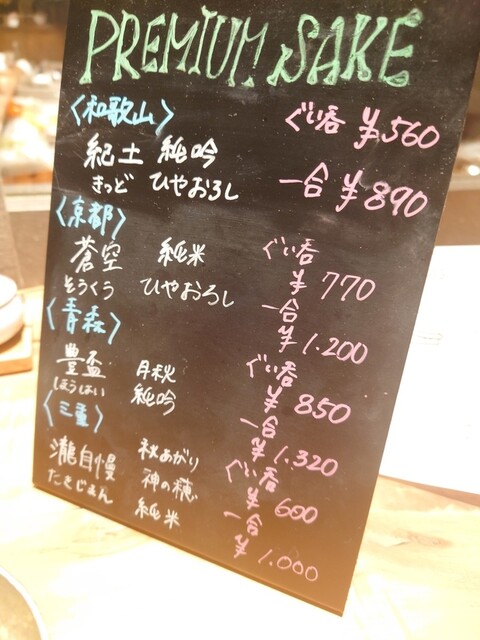 PREMIUM SAKE
〈和歌山〉 ぐい呑 ¥560
紀土 純吟
きっど ひやおろし 一合 ¥890
〈京都〉
蒼空 純米 ぐい呑 ¥770
そうくう ひやおろし 一合 ¥1.200
〈青森〉
豊盃 月秋 ぐい呑 ¥850
ほうはい 純吟 一合 ¥1.320
〈三重〉
瀧自慢 秋あがり ぐい呑 ¥600
たきじまん 神の穂 一合 ¥1.000
純米